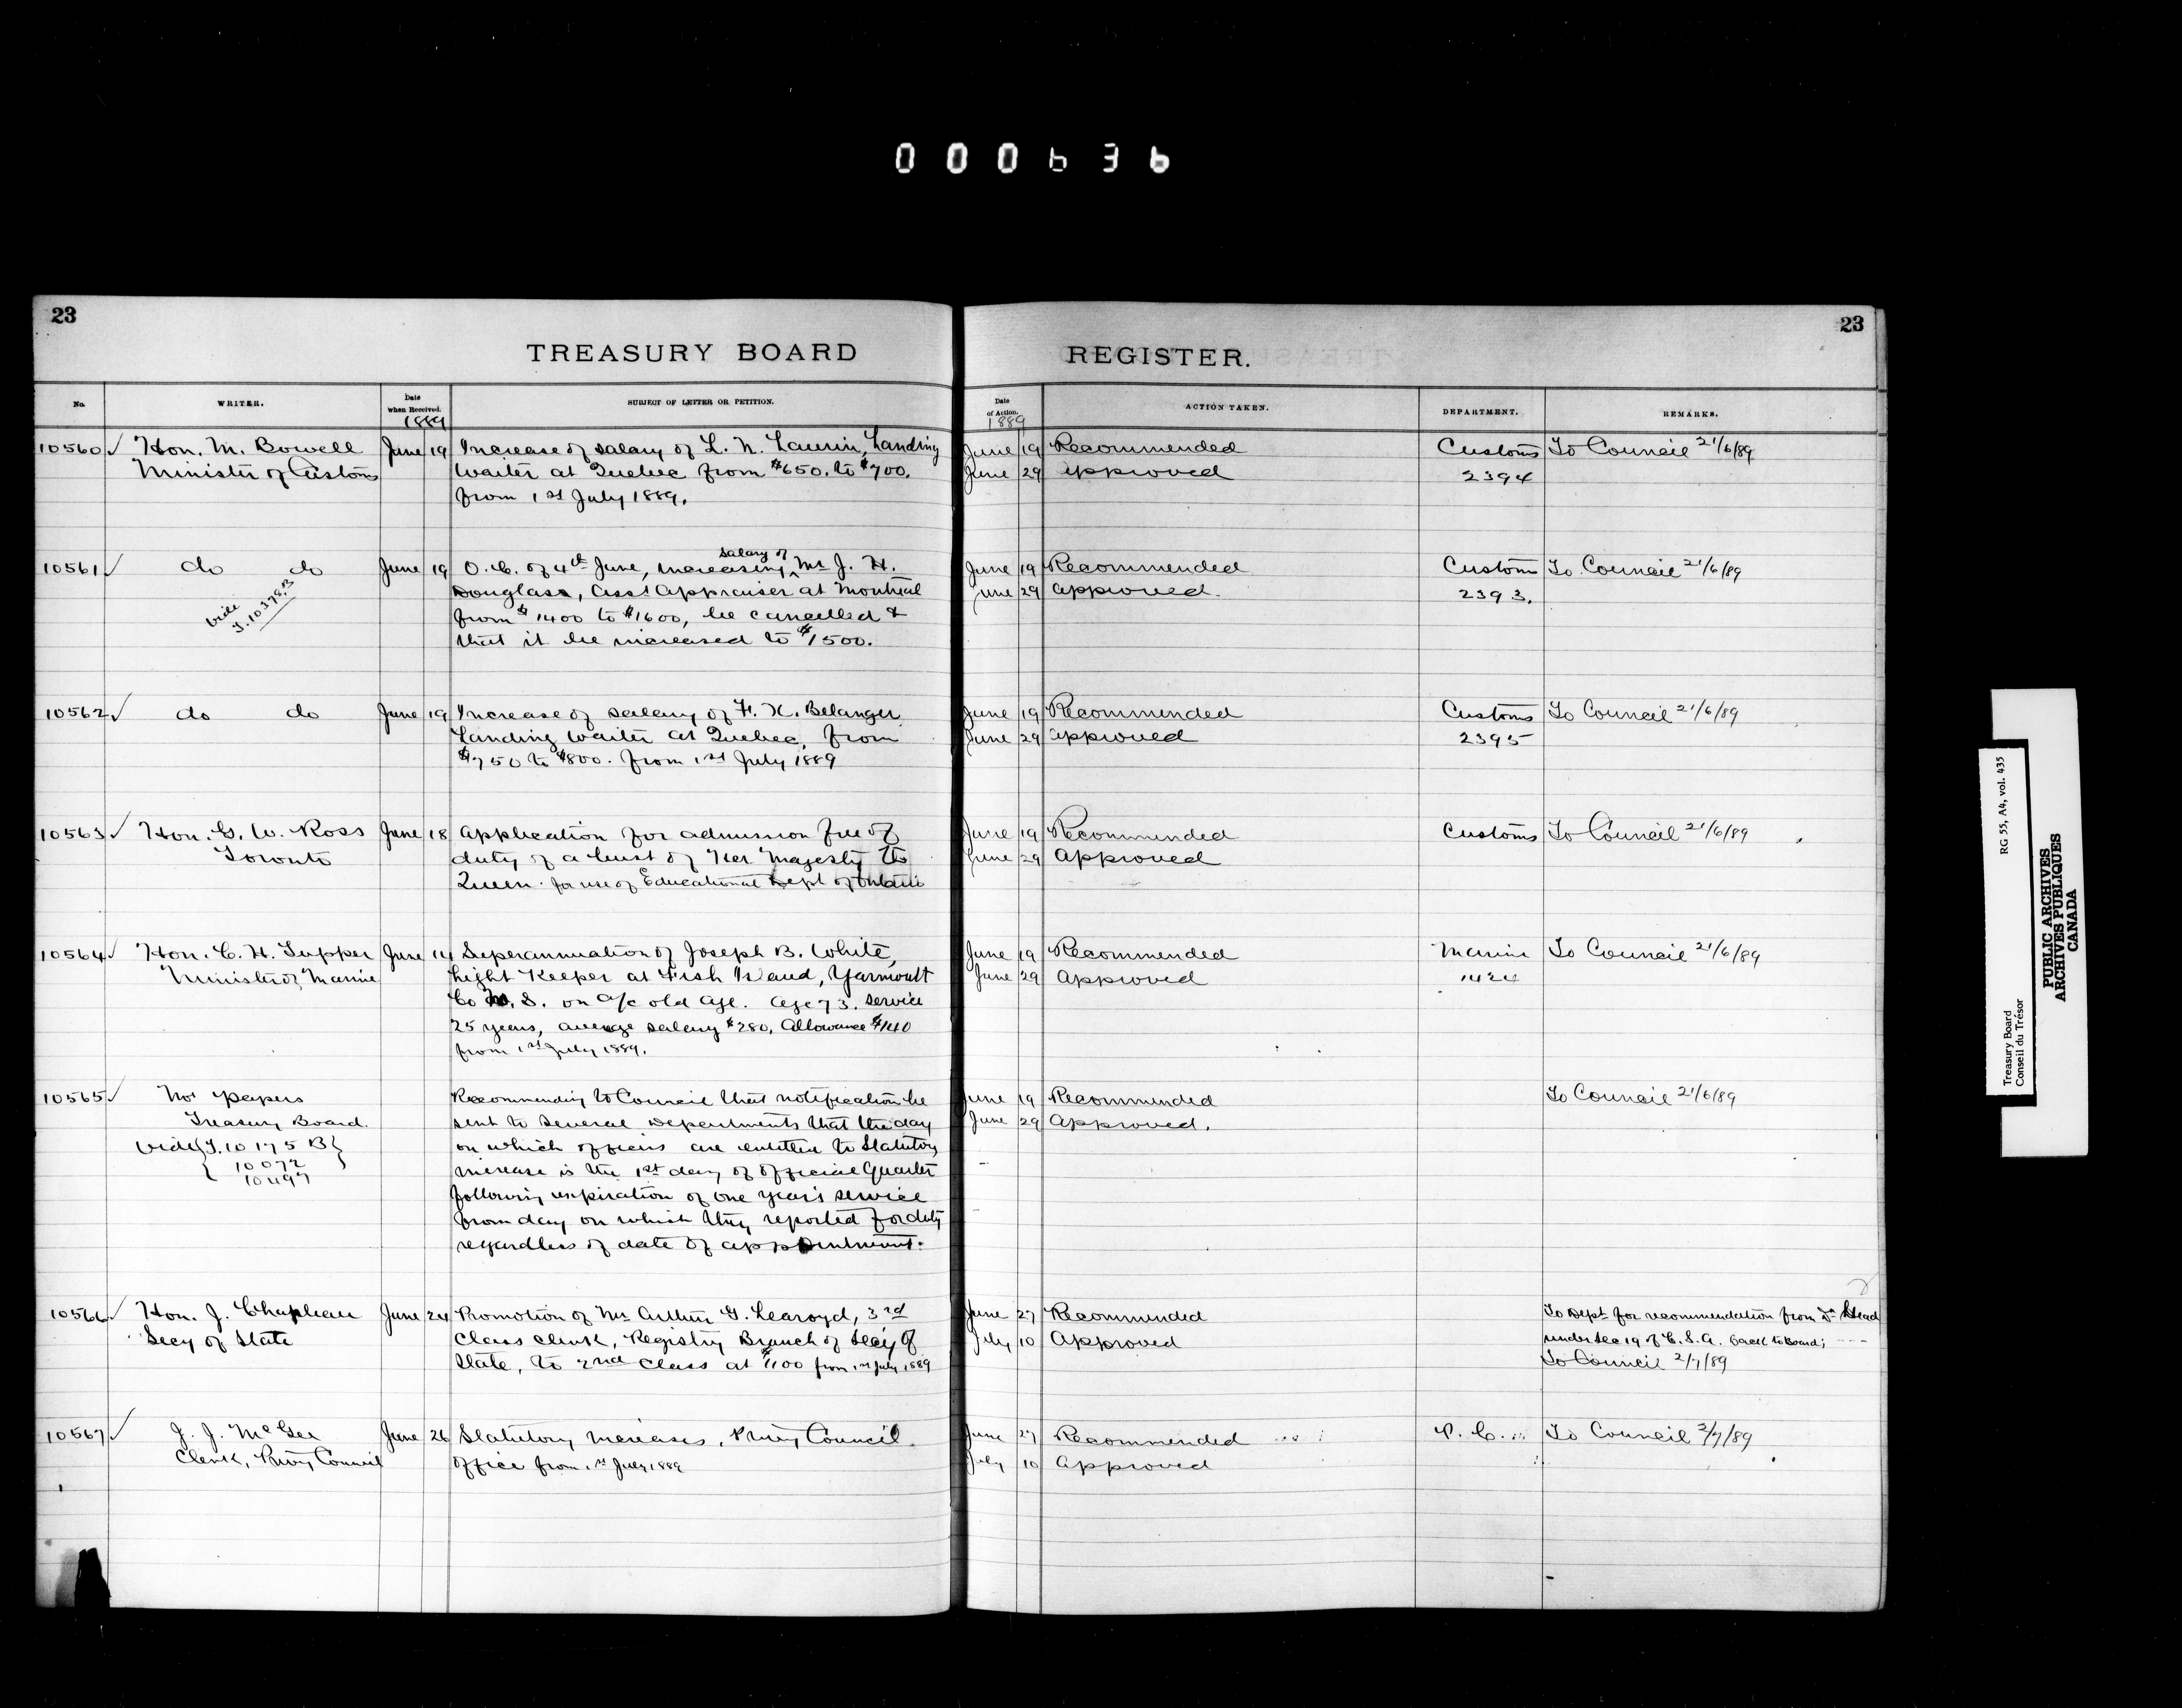 000636
23
TREASURY BOARD
No.
WRITER.
Date when Received.
1889
SUBJECT OF LETTER OR PETITION.
10560 Hon. M. Bowell June 19 Increase of salary of L. N. Laurin, Landing
Minister of Customs Waiter at Quebec from $650. to $700.
from 1st July 1889.
10561 do do June 19 O.C. of 4th June, increasing salary of Mr J. H.
Vide T. 10378.B Douglass, Asst Appraiser at Montreal
from $1400 to $1600, be cancelled &
that it be increased to $1500.
10562 do do June 19 Increase of salary of F. X. Belanger
Landing Waiter at Quebec, from
$750 to $800. from 1st July 1889
10563 Hon. G. W. Ross June 18 Application for admission free of
Toronto duty of a bust of Her Majesty the
Queen. for use of Educational Dept of Ontario
10564 Hon. C. H. Tupper June 14 Superannuation of Joseph B. White,
Minister of Marine Light Keeper at Fish Island, Yarmouth
Co N. S. on a/c old age. Age 73. Service
25 years, average salary $280. Allowance $140
from 1st July 1889.
10565 No papers Recommending to Council that notification be
Treasury Board. sent to several Departments that the day
Vide T. 10175 B on which officers are entitled to Statutory
10072 increase is the 1st day of official Quarter
10497 following expiration of one year's service
from day on which they reported for duty
regardless of date of appointment.
10566 Hon. J. Chapleau June 24 Promotion of Mr Arthur G. Learoyd, 3rd
Secy of State Class Clerk, Registry Branch of Secy of
State, to 2nd Class at $1100 from 1st July 1889
10567 J. J. McGee June 26 Statutory increases, Privy Council
Clerk, Privy Council Office from 1st July 1889
23
REGISTER.
Date of Action.
1889
ACTION TAKEN.
DEPARTMENT.
REMARKS.
June 19 Recommended Customs To Council 21/6/89
June 29 Approved 2394
June 19 Recommended Customs To Council 21/6/89
June 29 Approved. 2393.
June 19 Recommended Customs To Council 21/6/89
June 29 Approved 2395
June 19 Recommended Customs To Council 21/6/89
June 29 Approved
June 19 Recommended Marine To Council 21/6/89
June 29 Approved 1424
June 19 Recommended To Council 21/6/89
June 29 Approved.
June 27 Recommended To Dept for recommendation from Dy Head
July 10 Approved under sec 19 of C. S. A. back to Board;
To Council 2/7/89
June 27 Recommended P. C. To Council 2/7/89
July 10 Approved
RG 55, A4, vol. 435
Treasury Board
Conseil du Trésor
PUBLIC ARCHIVES
ARCHIVES PUBLIQUES
CANADA